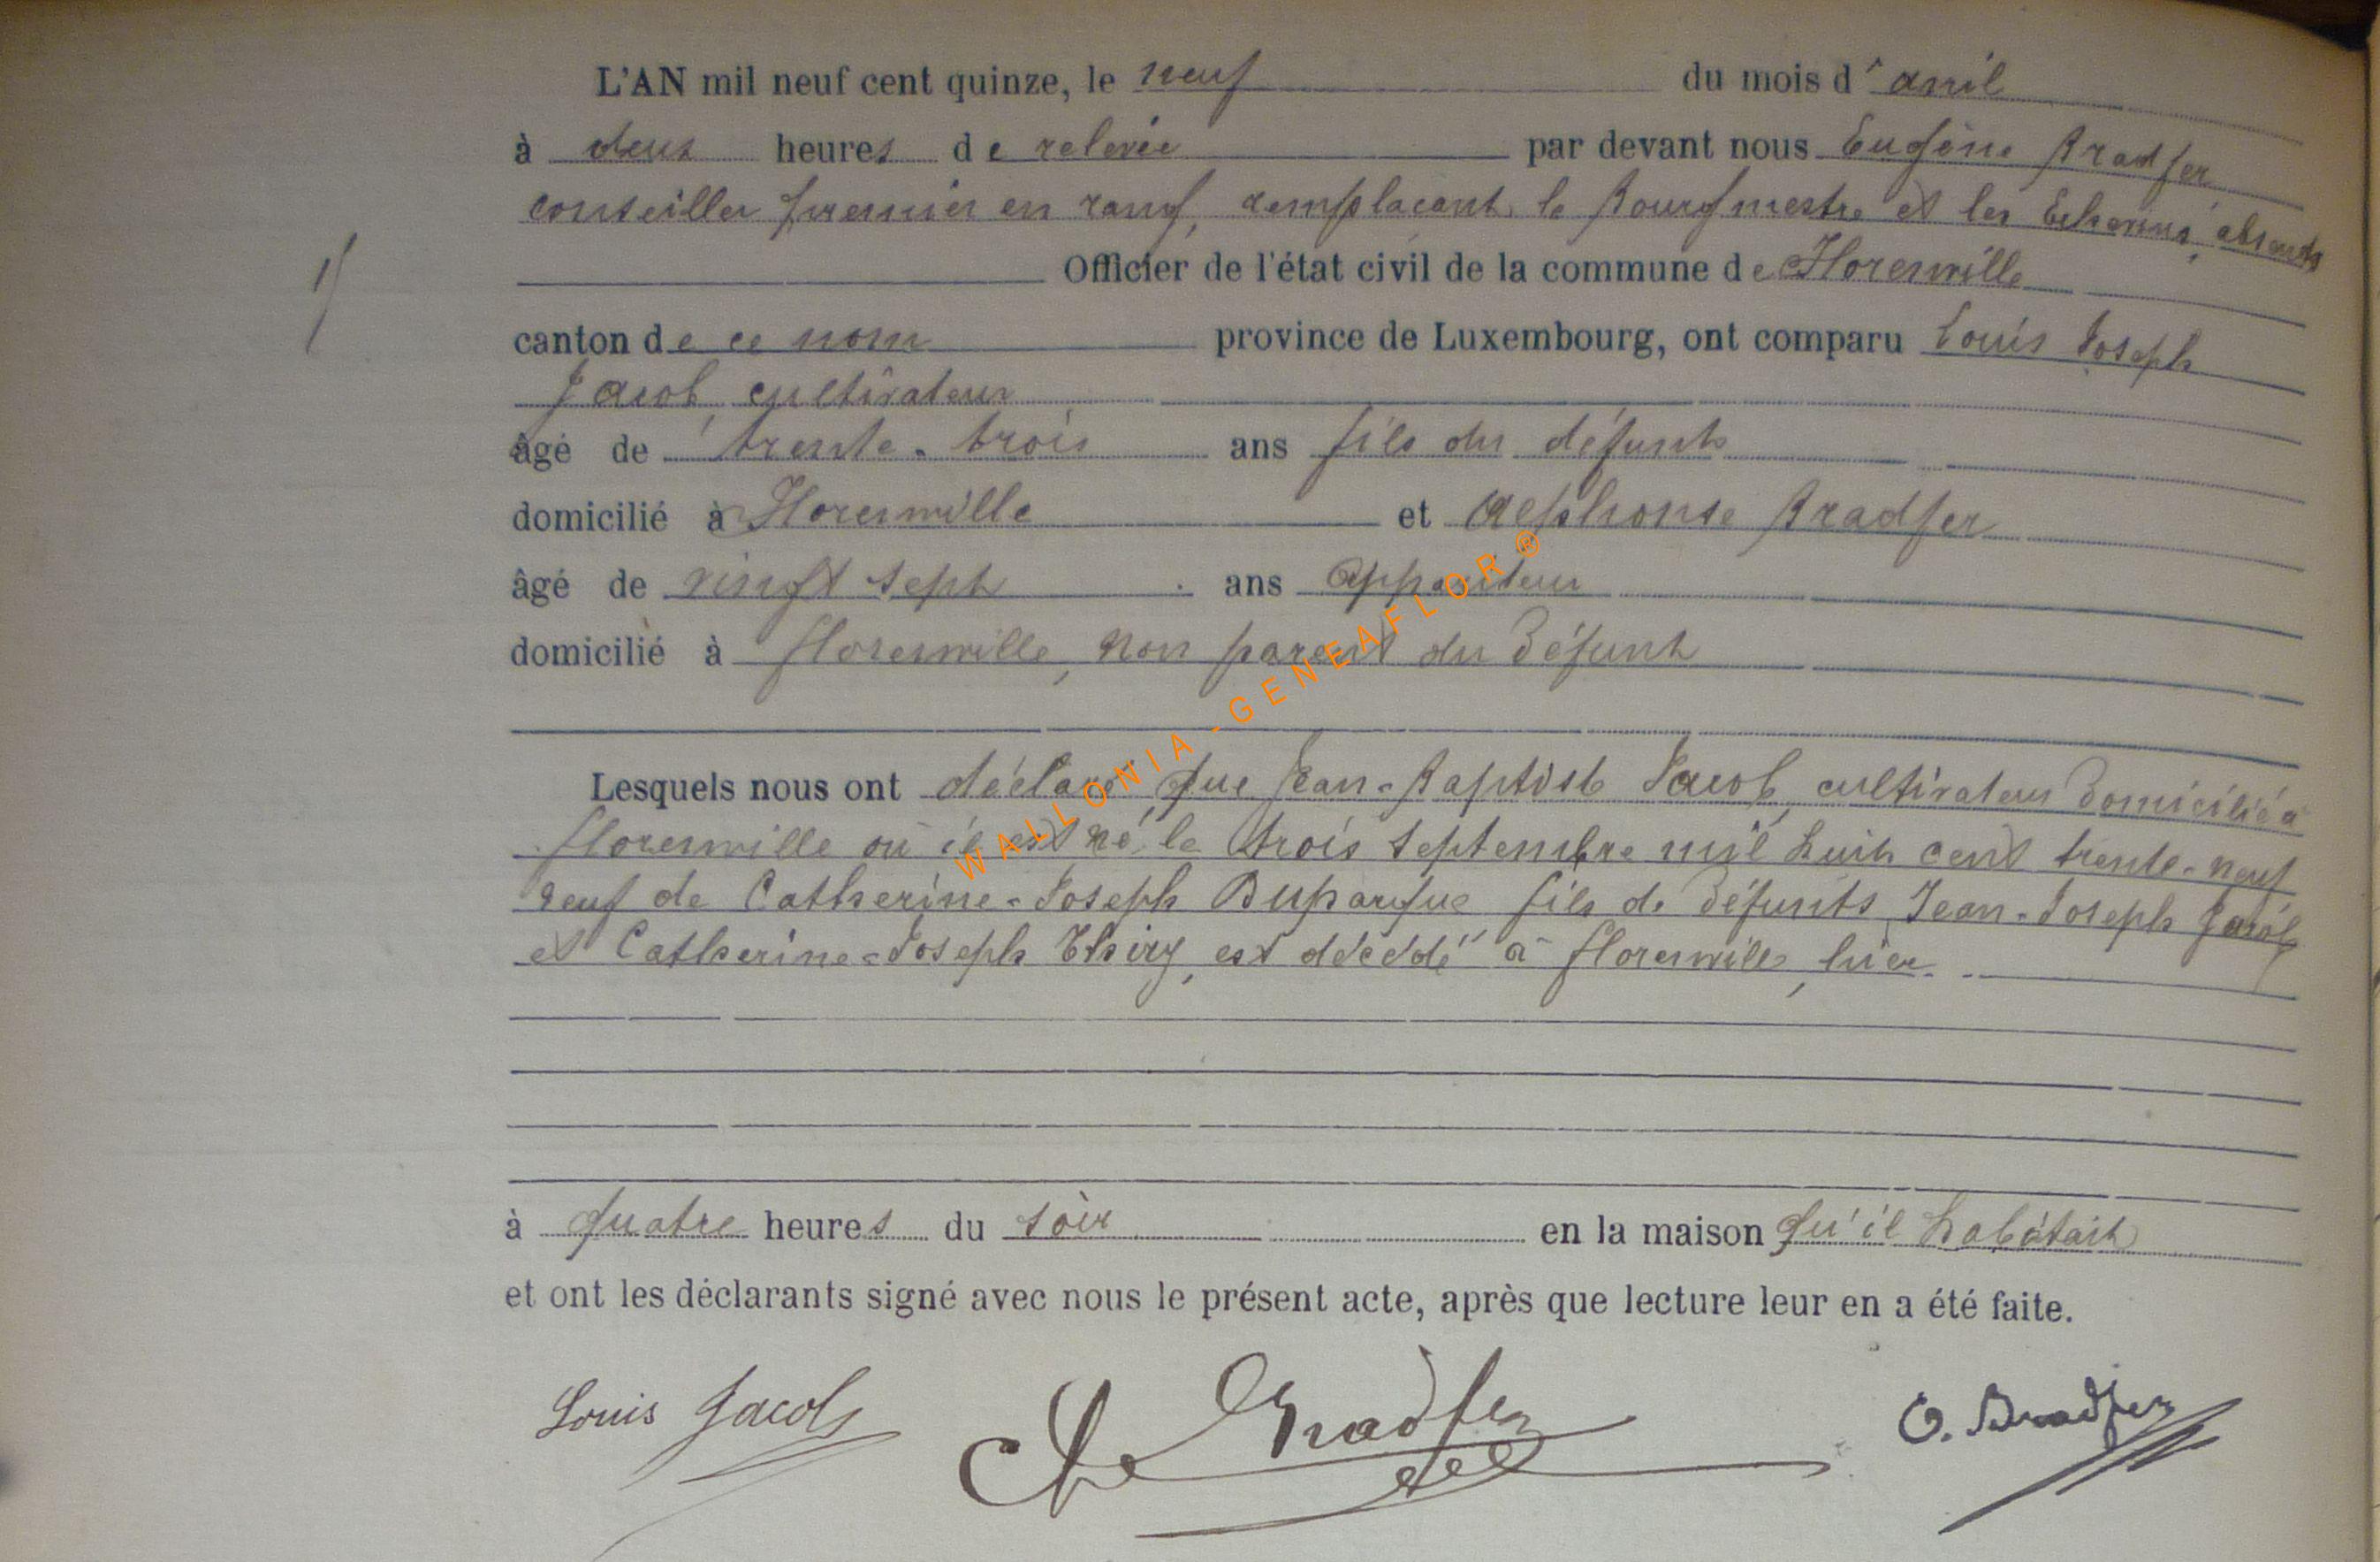 L'AN mil neuf cent quinze, le neuf du mois d' avril
à deux heures de relevée par devant nous Eugène Bradfer
conseiller premier en rang, remplaçant le Bourgmestre et les Echevins, absents
Officier de l'état civil de la commune de Florenville
canton de ce nom province de Luxembourg, ont comparu Louis Joseph
Jacob, cultivateur
âgé de trente-trois ans fils du défunt
domicilié à Florenville et Alphonse Bradfer
âgé de vingt sept ans appariteur
domicilié à Florenville, non parent du défunt
Lesquels nous ont déclaré que Jean-Baptiste Jacob, cultivateur domicilié à
Florenville où il est né le trois septembre mil huit cent trente-neuf
veuf de Catherine-Joseph Duparque fils de défunts Jean-Joseph Jacob
et Catherine-Joseph Thiry, est décédé à Florenville, hier
à quatre heures du soir en la maison qu'il habitait
et ont les déclarants signé avec nous le présent acte, après que lecture leur en a été faite.
Louis Jacob Bradfer Bradfer
WALLONIA-GENEAFLOR ®